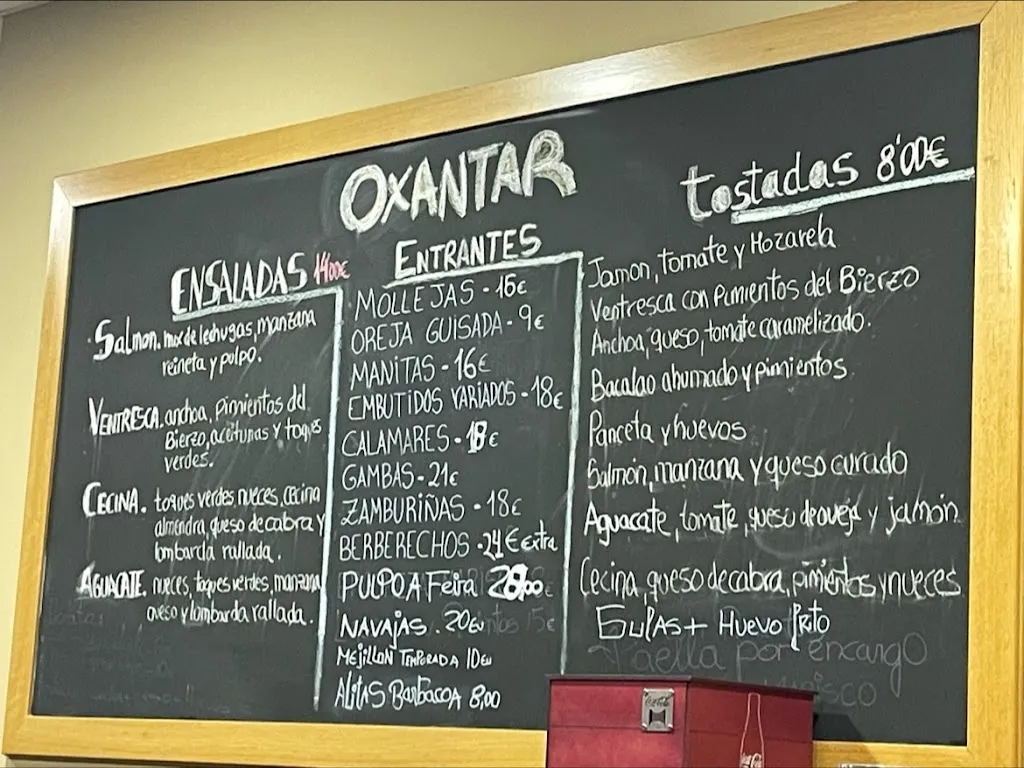 OXANTAR
ENSALADAS 14'00€
Salmon. mix de lechugas, manzana
reineta y pulpo.
VENTRESCA. anchoa, pimientos del
Bierzo, aceitunas y toques
verdes.
CECINA. toques verdes, nueces, cecina
almendra, queso de cabra y
lombarda rallada.
AGUACATE. nueces, toques verdes, manzana
queso y lombarda rallada.
ENTRANTES
MOLLEJAS - 16€
OREJA GUISADA - 9€
MANITAS - 16€
EMBUTIDOS VARIADOS - 18€
CALAMARES - 18€
GAMBAS - 21€
ZAMBURIÑAS - 18€
BERBERECHOS - 24€ extra
PULPO A Feira 28,00€
NAVAJAS . 20€
MEJILLON TEMPORADA 10€
ALITAS BARBACOA 8,00
tostadas 8'00€
Jamon, tomate y Mozarela
Ventresca con Pimientos del Bierzo
Anchoa, queso, tomate caramelizado.
Bacalao ahumado y pimientos.
Panceta y huevos
Salmón, manzana y queso curado
Aguacate, tomate, queso de oveja y jamón
Cecina, queso de cabra, pimientos y nueces
GULAS + HUEVO frito
Paella por encargo
Coca-Cola